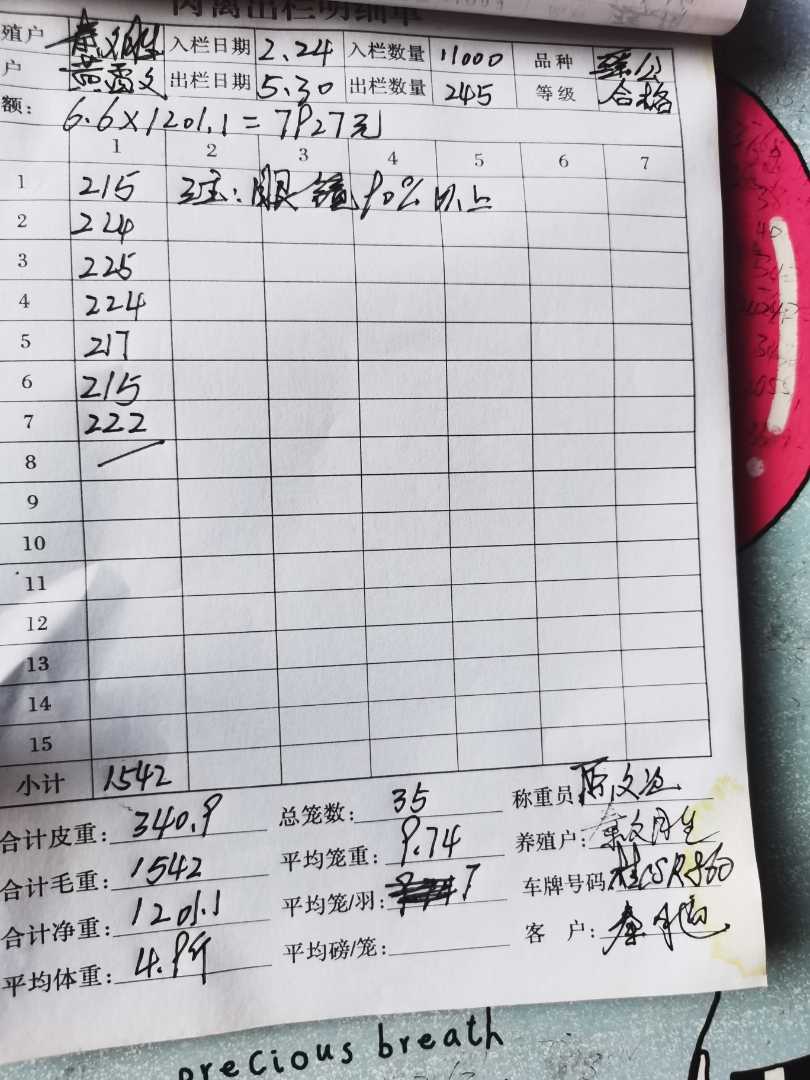 肉禽出栏明细单
殖户 入栏日期 2.24 入栏数量 11000 品种
户 出栏日期 5.30 出栏数量 245 等级 合格
额: 6.6×1201.1=7927元
1 2 3 4 5 6 7
1 215 90%以上
2 224
3 225
4 224
5 217
6 215
7 222
8
9
10
11
12
13
14
15
小计 1542
合计皮重: 340.9 总笼数: 35 称重员
合计毛重: 1542 平均笼重: 9.74 养殖户:
合计净重: 1201.1 平均笼/羽: 7 车牌号码
平均体重: 4.9斤 平均磅/笼: 客 户:
precious breath